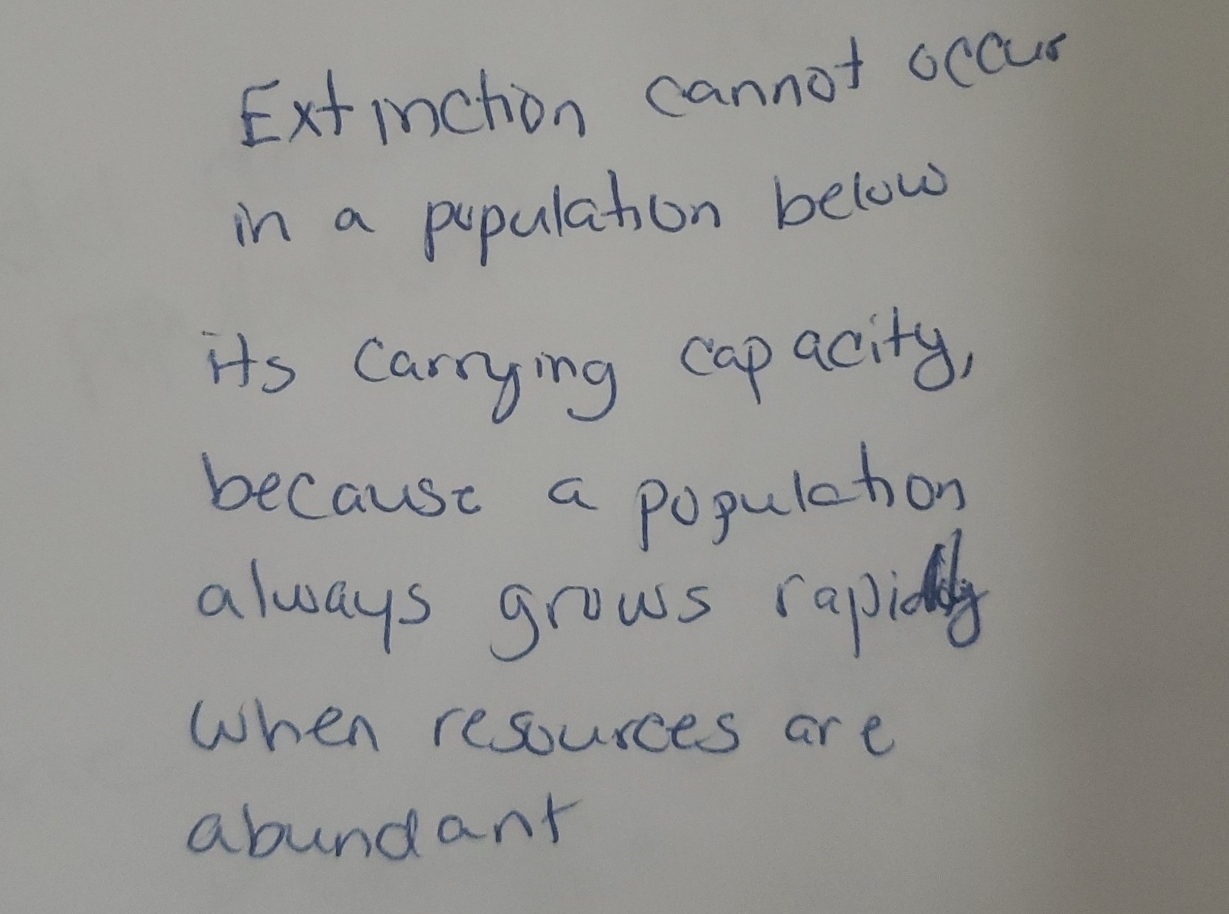 Extinction cannot occur
in a population below
its carrying capacity,
because a population
always grows rapidly
when resources are
abundant